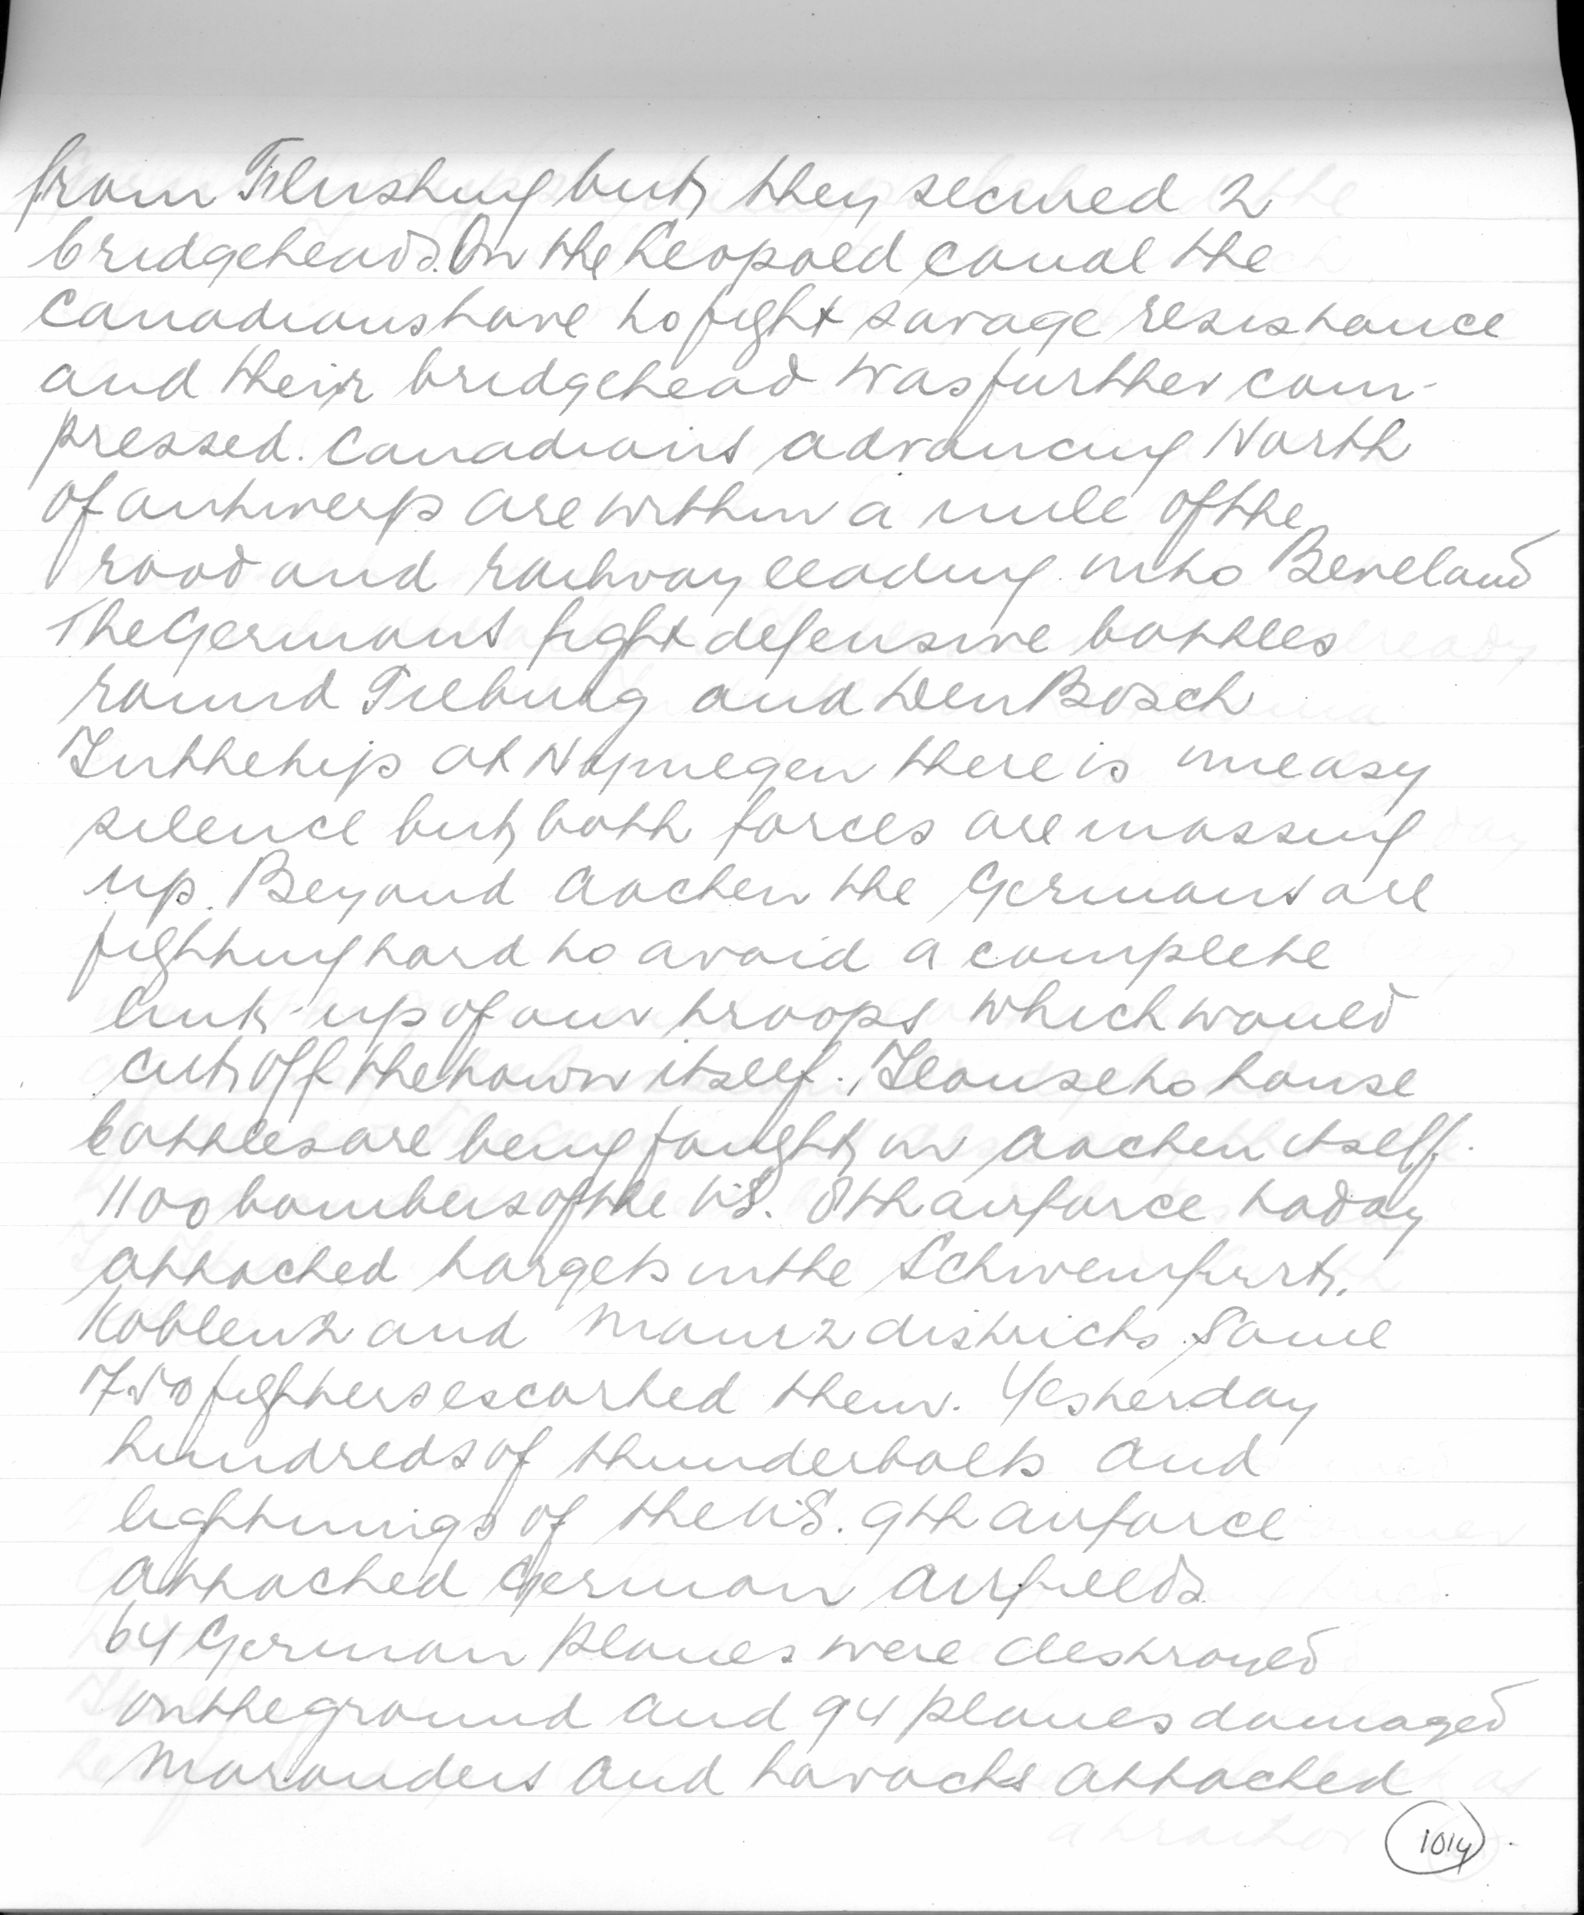 from Flushing but they secured 2
bridgeheads. On the Leopold canal the
Canadians have to fight savage resistance
and their bridgehead was further com-
pressed. Canadians advancing North
of antwerp are within a mile of the
road and railway leading into Beveland
The Germans fight defensive battles
round Tilburg and Den Bosch
In the tip at Nymegen there is uneasy
silence but both forces are massing
up. Beyond Aachen the Germans are
fighting hard to avoid a complete
link-up of our troops which would
cut off the town itself. House to house
battles are being fought in Aachen itself.
1100 bombers of the U.S. 8th airforce today
attacked targets in the Schweinfurt,
Koblenz and Mainz districts. Some
750 fighters escorted them. Yesterday
hundreds of thunderbolts and
lightnings of the U.S. 9th airforce
attacked German airfields
64 German planes were destroyed
on the ground and 94 planes damaged
Marauders and havocks attacked
1014